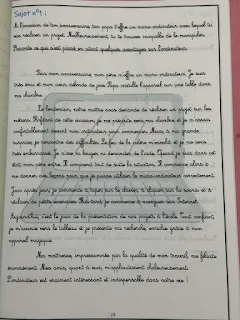 Sujet n°1 :
A l'occasion de ton anniversaire, ton papa t'offre un micro-ordinateur avec lequel tu
vas réaliser un projet. Malheureusement, tu te trouves incapable de le manipuler.
Raconte ce qui s'est passé en citant quelques avantages sur l'ordinateur.
Pour mon anniversaire, mon père m'offre un micro-ordinateur. Je suis
très ému et mon cœur déborde de joie. Papa installe l'appareil sur une table dans
ma chambre.
Le lendemain, notre maître nous demande de réaliser un projet sur les
métiers. Profitant de cette occasion, je me précipite vers ma chambre et je m'assois
confortablement devant mon ordinateur pour commencer. Mais, à ma grande
surprise, je rencontre des difficultés. Le feu de la colère m'envahit et je me sens
très embarrassé. Je n'ose ni bouger ni demander de l'aide. Quand je suis dans cet
état, mon père entre. Il comprend tout de suite la situation. Il commence alors à
me donner des leçons pour que je puisse utiliser le micro-ordinateur correctement.
Jour après jour, je commence à taper sur le clavier, à cliquer sur la souris et à
réaliser de petits exercices. Plus tard, je commence à naviguer sur Internet.
Aujourd'hui, c'est le jour de la présentation de nos projets à l'école. Tout confiant,
je m'avance vers le tableau et je présente ma recherche enrichie grâce à mon
appareil magique.
Ma maîtresse, impressionnée par la qualité de mon travail, me félicite
énormément. Mes amis, quant à eux, m'applaudissent chaleureusement.
L'ordinateur est vraiment intéressant et indispensable dans notre vie !